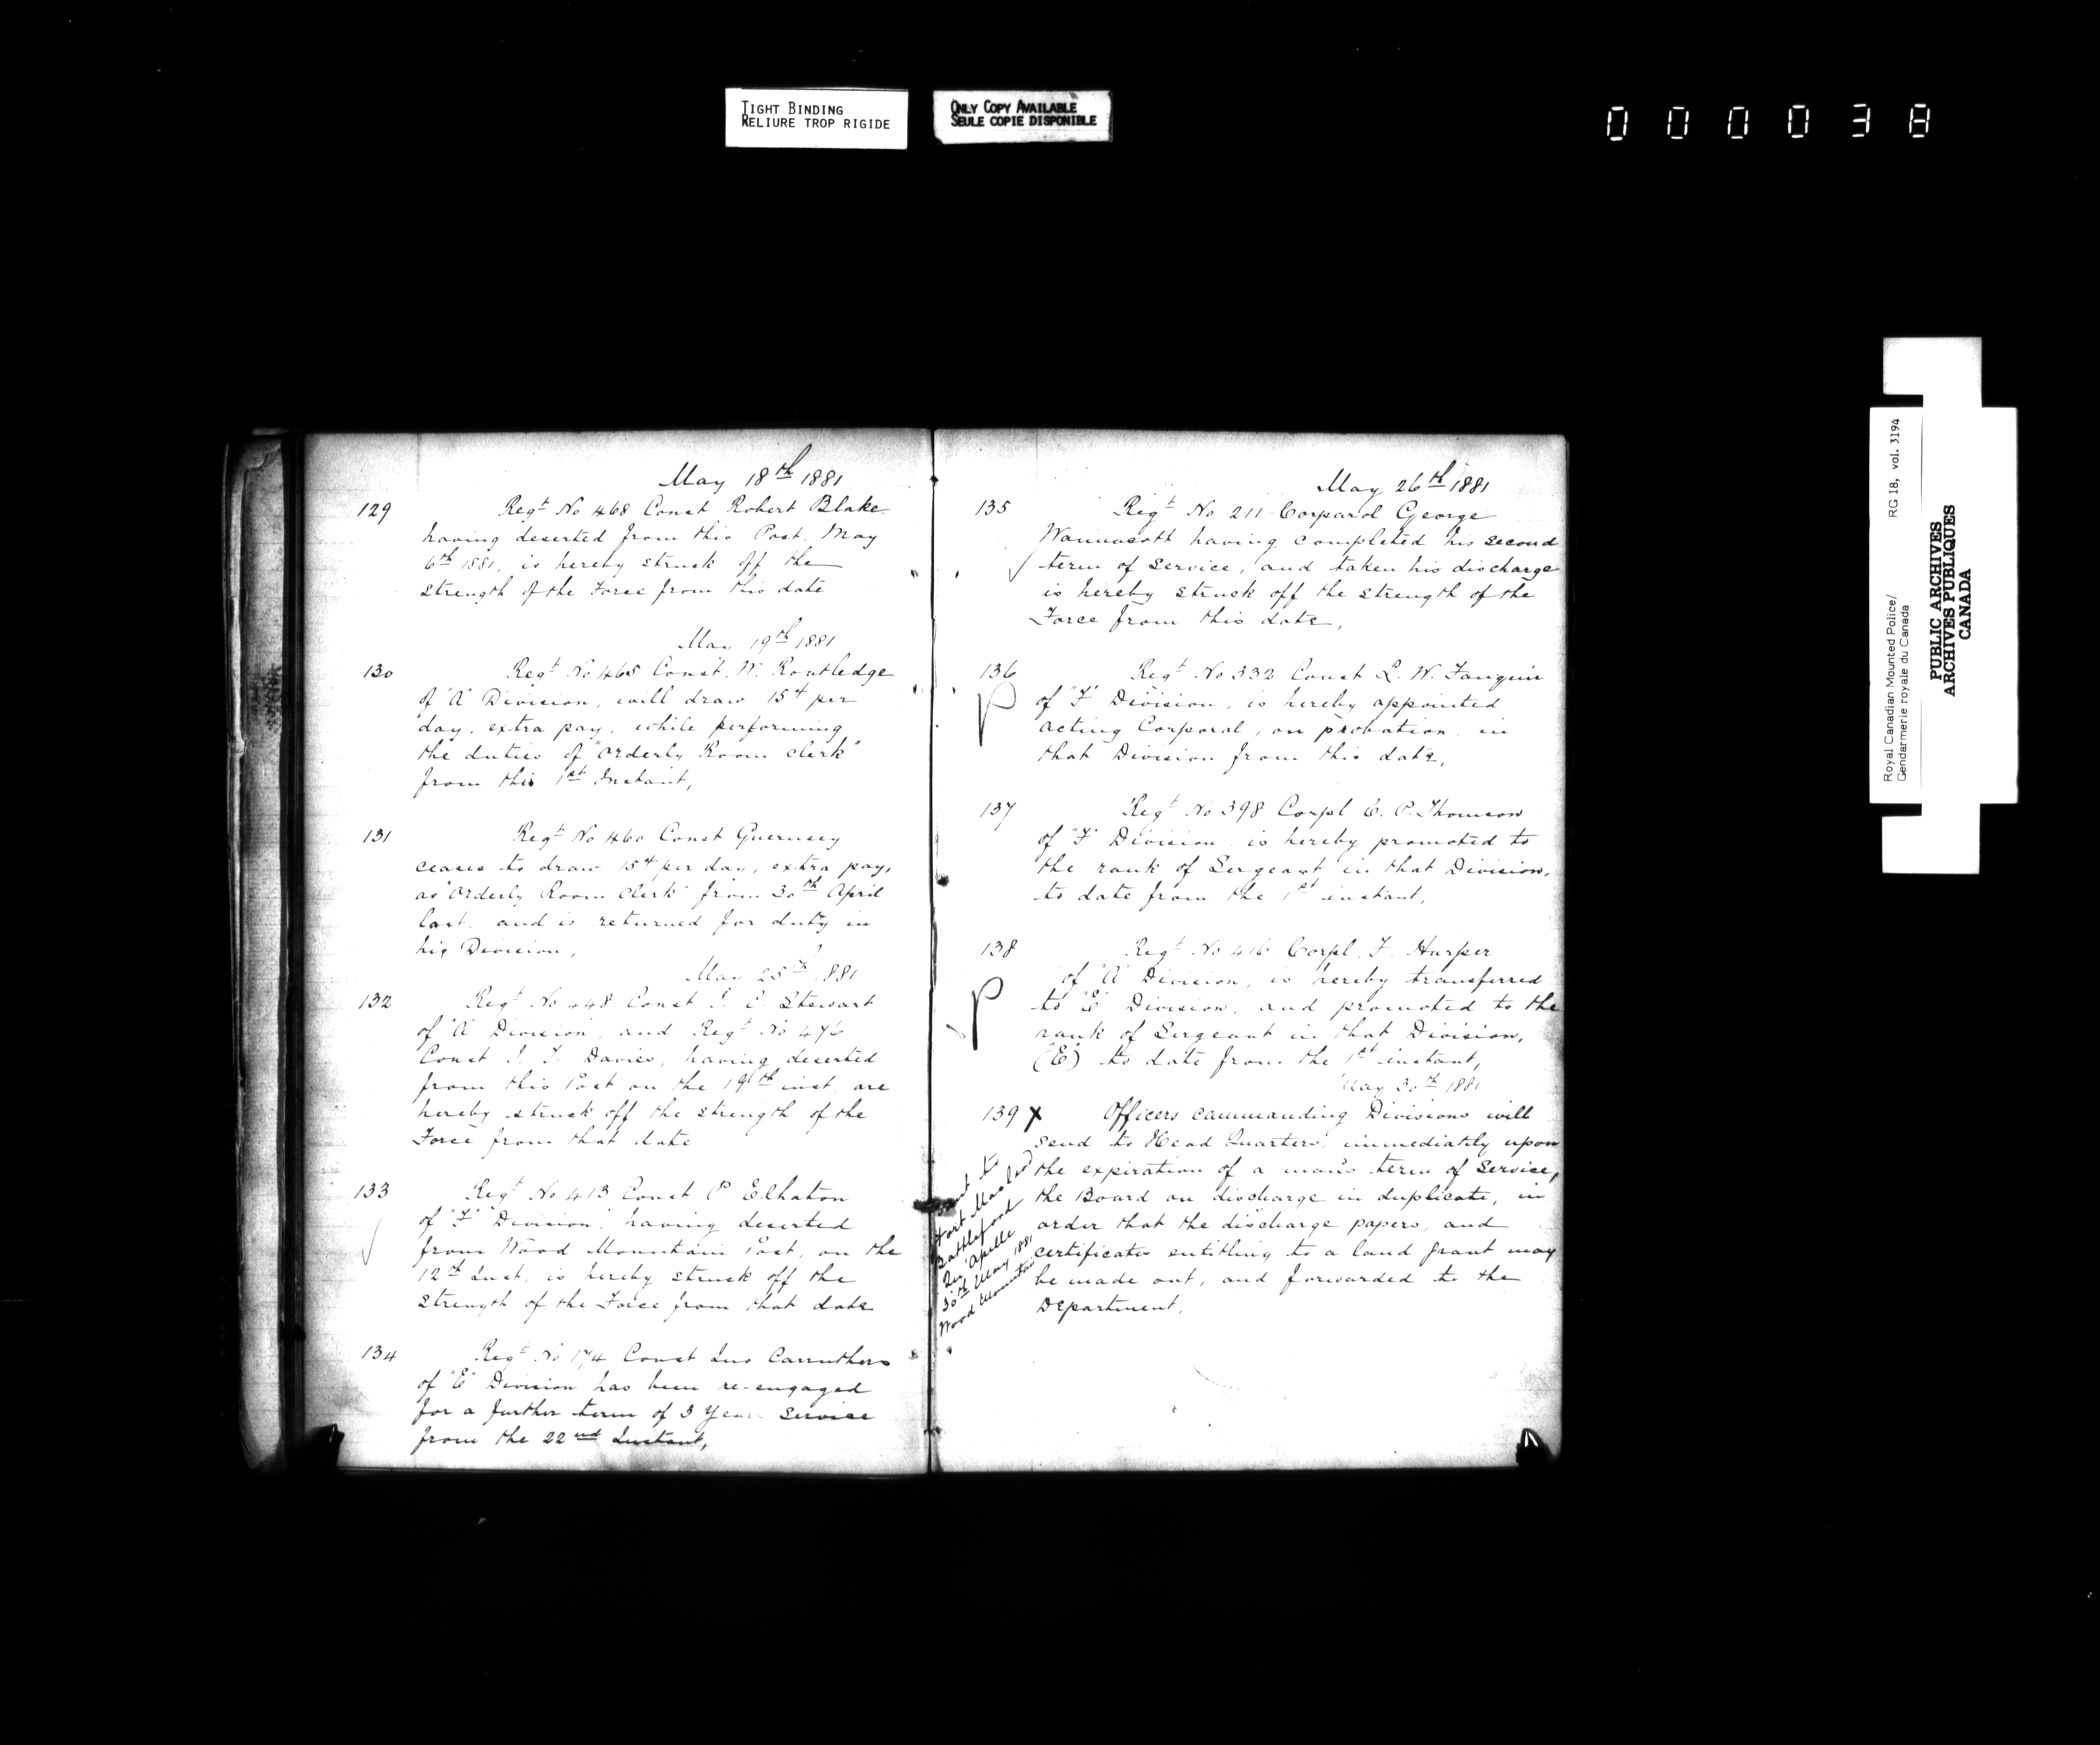 TIGHT BINDING
RELIURE TROP RIGIDE
ONLY COPY AVAILABLE
SEULE COPIE DISPONIBLE
000038
May 18th 1881
129 Regt No 468 Const Robert Blake
having deserted from this Post. May
6th 1881, is hereby struck off the
strength of the Force from this date
May 19th 1881
130 Regt No 465 Const. W. Routledge
of "A" Division, will draw 15¢ per
day, extra pay, while performing
the duties of "Orderly Room Clerk"
from the 1st Instant,
131 Regt No 460 Const Guernsey
ceases to draw 15¢ per day, extra pay,
as "Orderly Room Clerk" from 30th April
last. and is returned for duty in
his Division,
May 25th 1881
132 Regt No 448 Const Stewart
of "A" Division, and Regt No 476
Const Davies, having deserted
from this Post on the 19th inst. are
hereby struck off the strength of the
Force from that date
133 Regt No 413 Const P
of "F" Division, having deserted
from Wood Mountain Post, on the
12th Inst, is hereby struck off the
strength of the Force from that date
134 Regt No 174 Const Jno Carruthers
of "E" Division has been re-engaged
for a further term of 3 Years Service
from the 22nd Instant,
May 26th 1881
135 Regt No 211 Corporal George
having completed his second
term of service, and taken his discharge
is hereby struck off the strength of the
Force from this date,
136 Regt No 332 Const L. W. Fauquir
P of "F" Division, is hereby appointed
acting Corporal, on probation, in
that Division from this date,
137 Regt No 398 Corpl C. P. Thomson
of "F" Division is hereby promoted to
the rank of Sergeant in that Division,
to date from the 1st instant,
138 Regt No 416 Corpl. F. Harper
of "A" Division, is hereby transferred
P to "E" Division, and promoted to the
rank of Sergeant in that Division,
("E") to date from the 1st instant,
May 30th 1881
139 X Officers commanding Divisions will
send to Head Quarters, immediately upon
the expiration of a man's term of Service,
the Board on discharge in duplicate, in
order that the discharge papers, and
certificates entitling to a land grant may
be made out, and forwarded to the
Department,
Sent to
Fort Macleod
Battleford
Qu'Apelle
30th May 1881
Wood Mountain
Royal Canadian Mounted Police/
Gendarmerie royale du Canada
RG 18, vol. 3194
PUBLIC ARCHIVES
ARCHIVES PUBLIQUES
CANADA